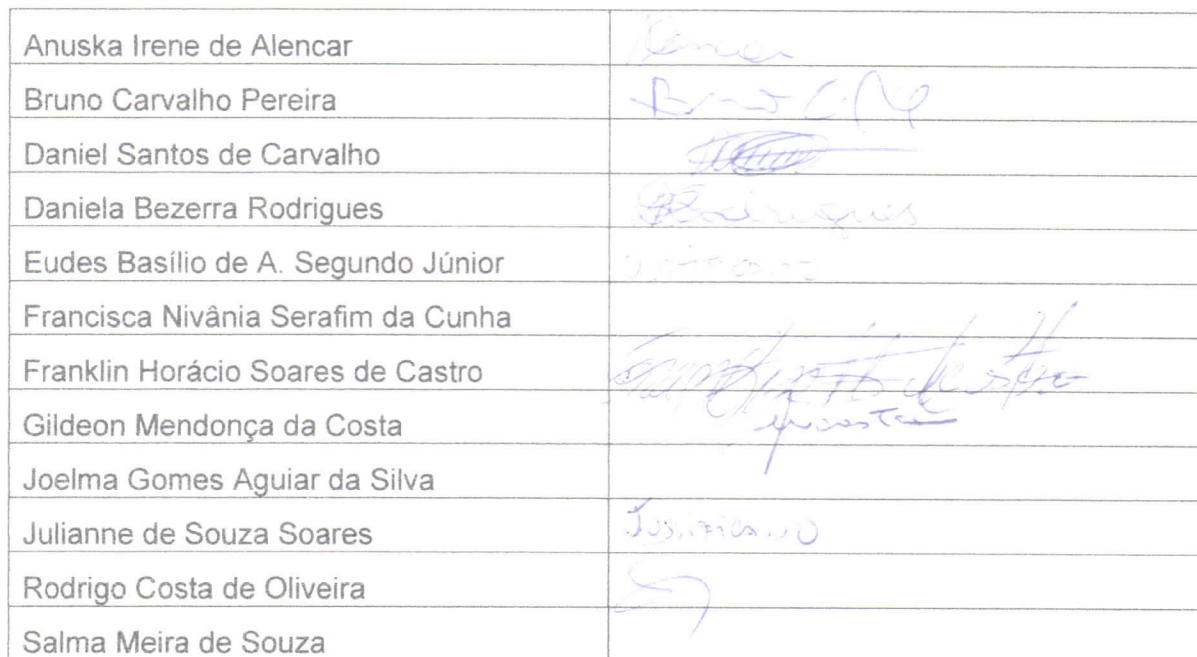 Anuska Irene de Alencar
Bruno Carvalho Pereira
Daniel Santos de Carvalho
Daniela Bezerra Rodrigues
Eudes Basílio de A. Segundo Júnior
Francisca Nivânia Serafim da Cunha
Franklin Horácio Soares de Castro
Gildeon Mendonça da Costa
Joelma Gomes Aguiar da Silva
Julianne de Souza Soares JUSTIFICADO
Rodrigo Costa de Oliveira
Salma Meira de Souza